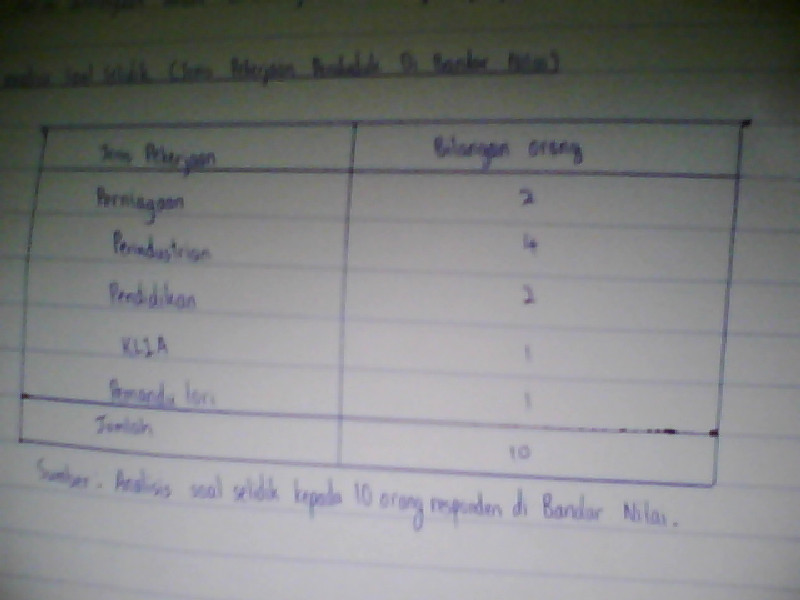 soal selidik (Jenis Pekerjaan Penduduk Di Bandar Nilai)
Jenis Pekerjaan Bilangan orang
Perniagaan 2
Perindustrian 4
Pendidikan 2
KLIA 1
Pemandu lori 1
Jumlah 10
Sumber. Analisis soal selidik kepada 10 orang responden di Bandar Nilai.